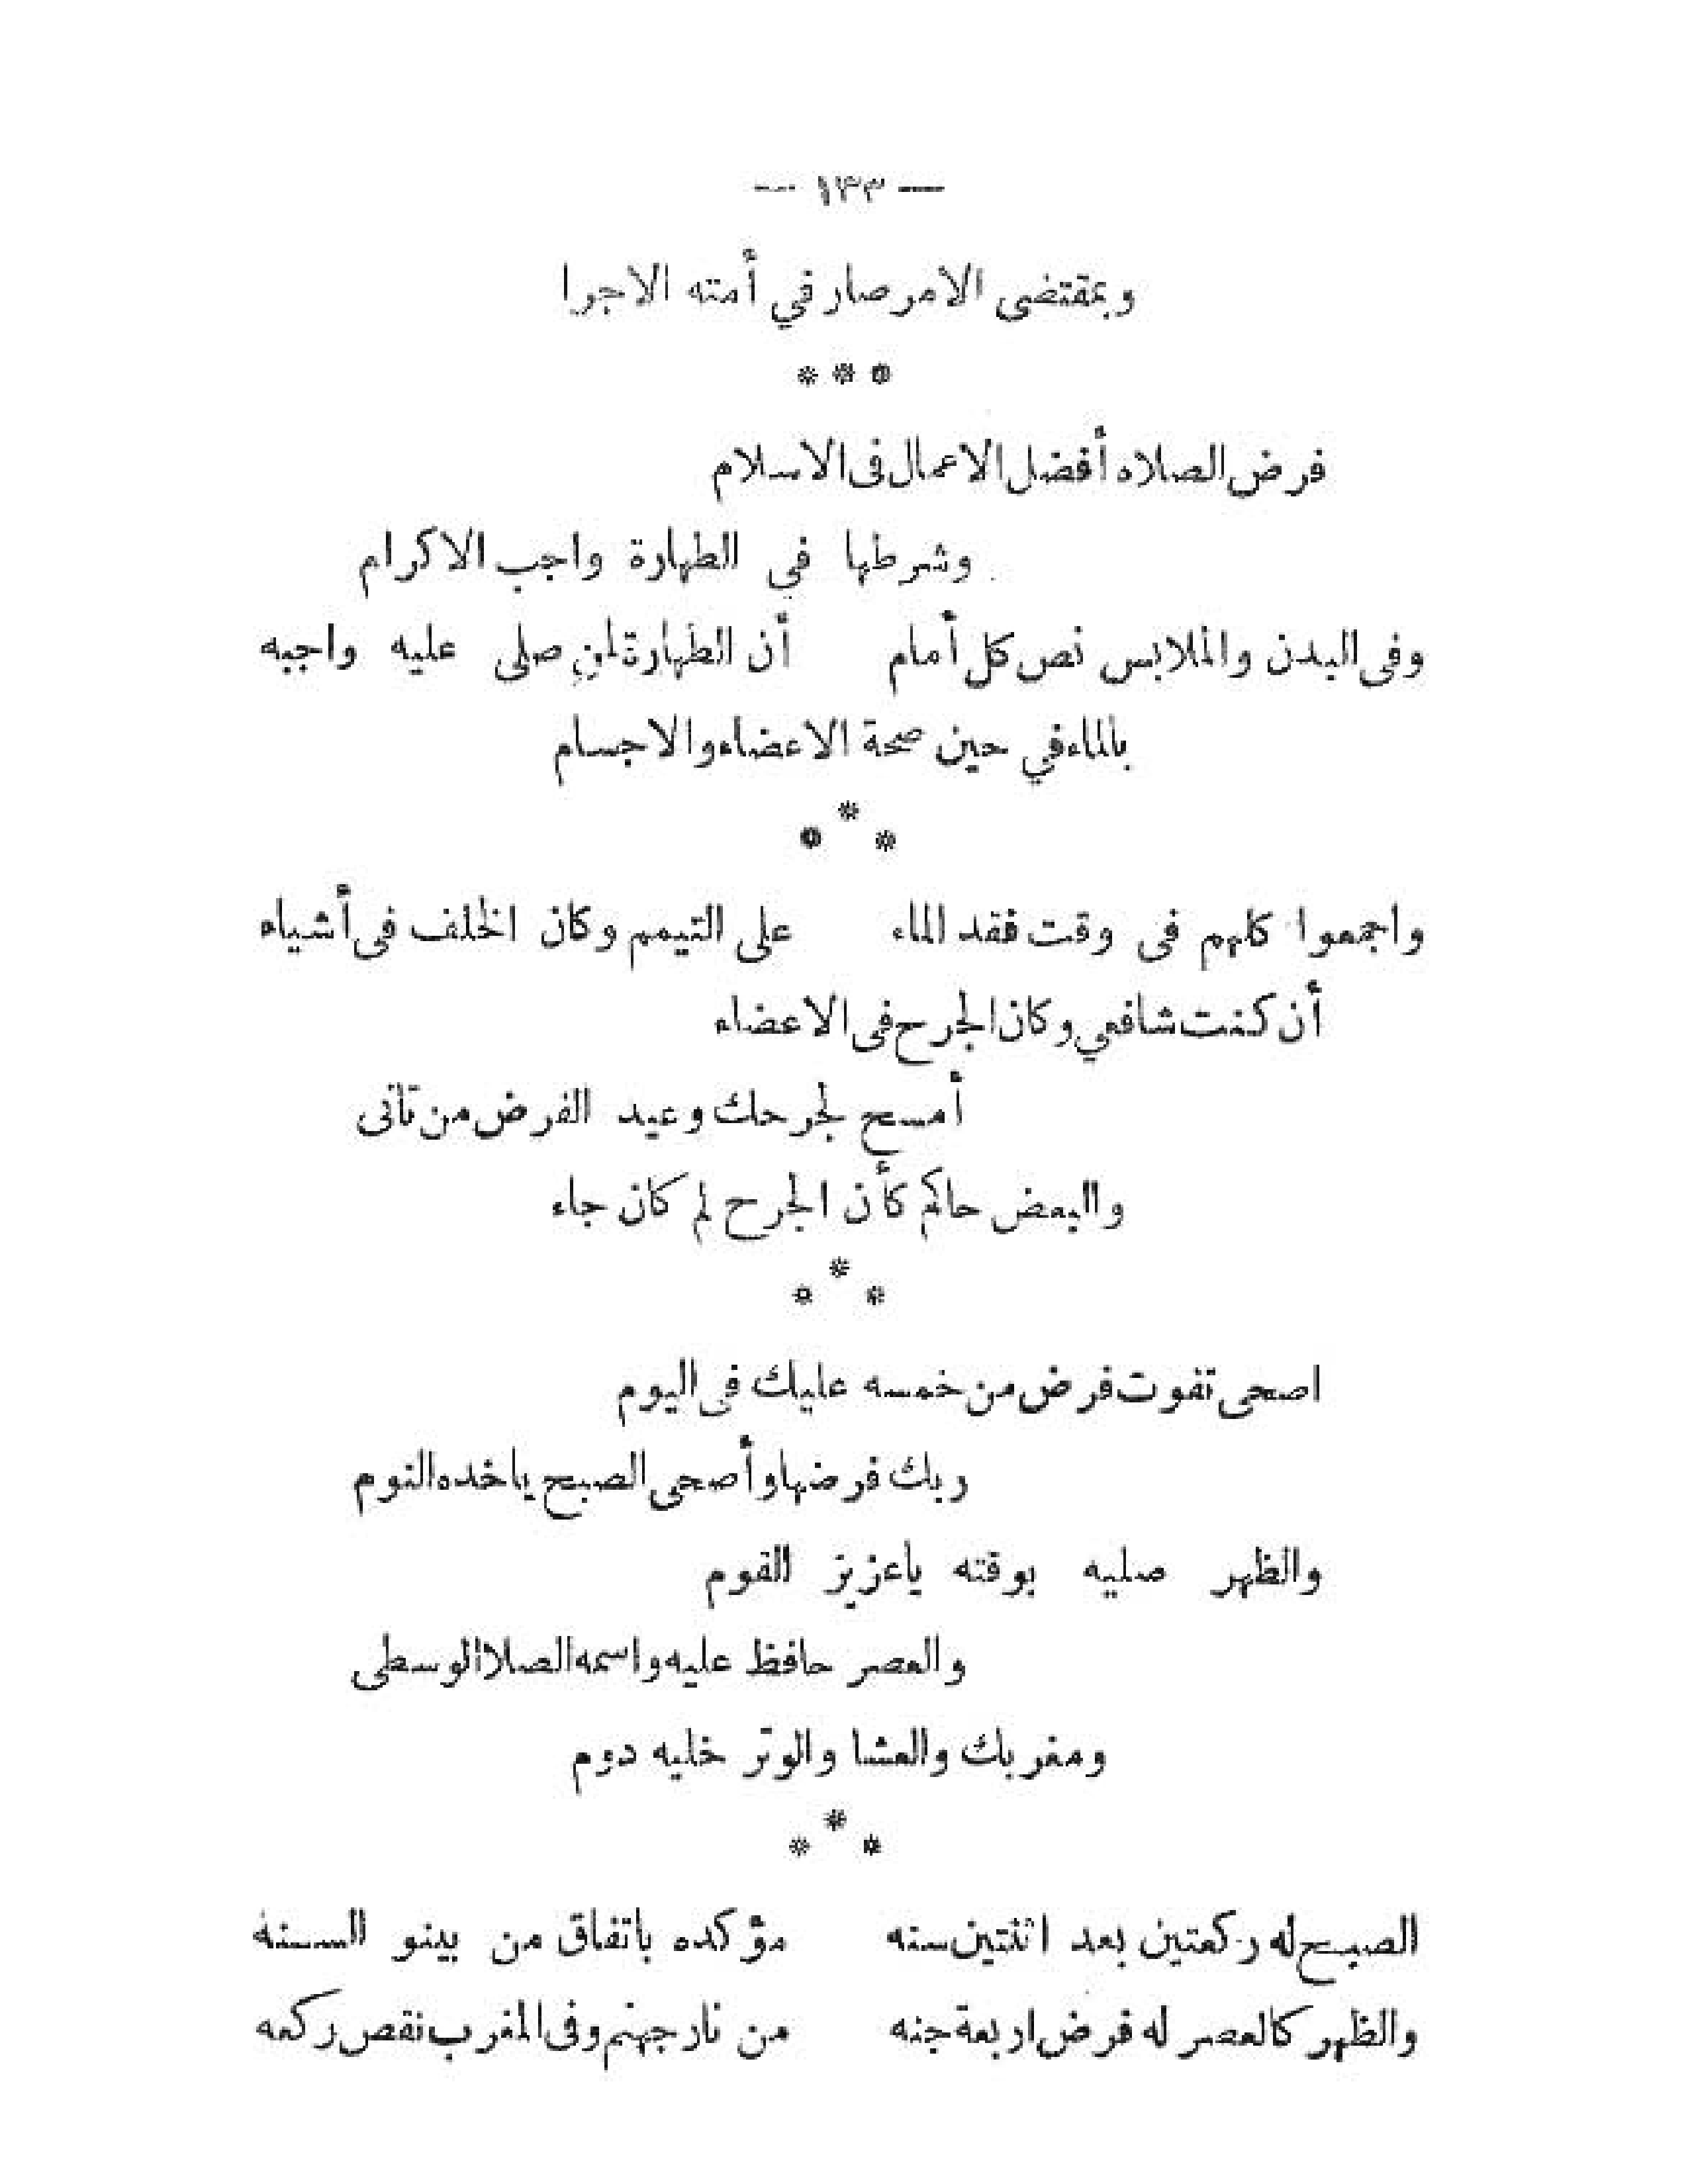 — ١٣٣ —
وبمقتضى الامر صار في أمته الاجرا
* * *
فرض الصلاه أفضل الاعمال فى الاسلام
وشرطها في الطهارة واجب الاكرام
وفى البدن والملابس نص كل أمام أن الطهارة لمن صلى عليه واجبه
بالماء في حين صحة الاعضاء والاجسام
* * *
واجمعوا كلهم فى وقت فقد الماء على التيمم وكان الخلف فى أشياء
أن كنت شافعي وكان الجرح فى الاعضاء
أمسح لجرحك وعيد الفرض من تانى
والبعض حاكم كأن الجرح لم كان جاء
* * *
اصحى تفوت فرض من خمسه عليك فى اليوم
ربك فرضها وأصحى الصبح ياخده النوم
والظهر صليه بوقته ياعزيز القوم
والعصر حافظ عليه واسمه الصلا الوسطى
ومغربك والعشا والوتر خليه دوم
* * *
الصبح له ركعتين بعد اثنتين سنه مؤكده باتفاق من بينو السنه
والظهر كالعصر له فرض اربعة جنه من نار جهنم وفى المغرب نقص ركعه